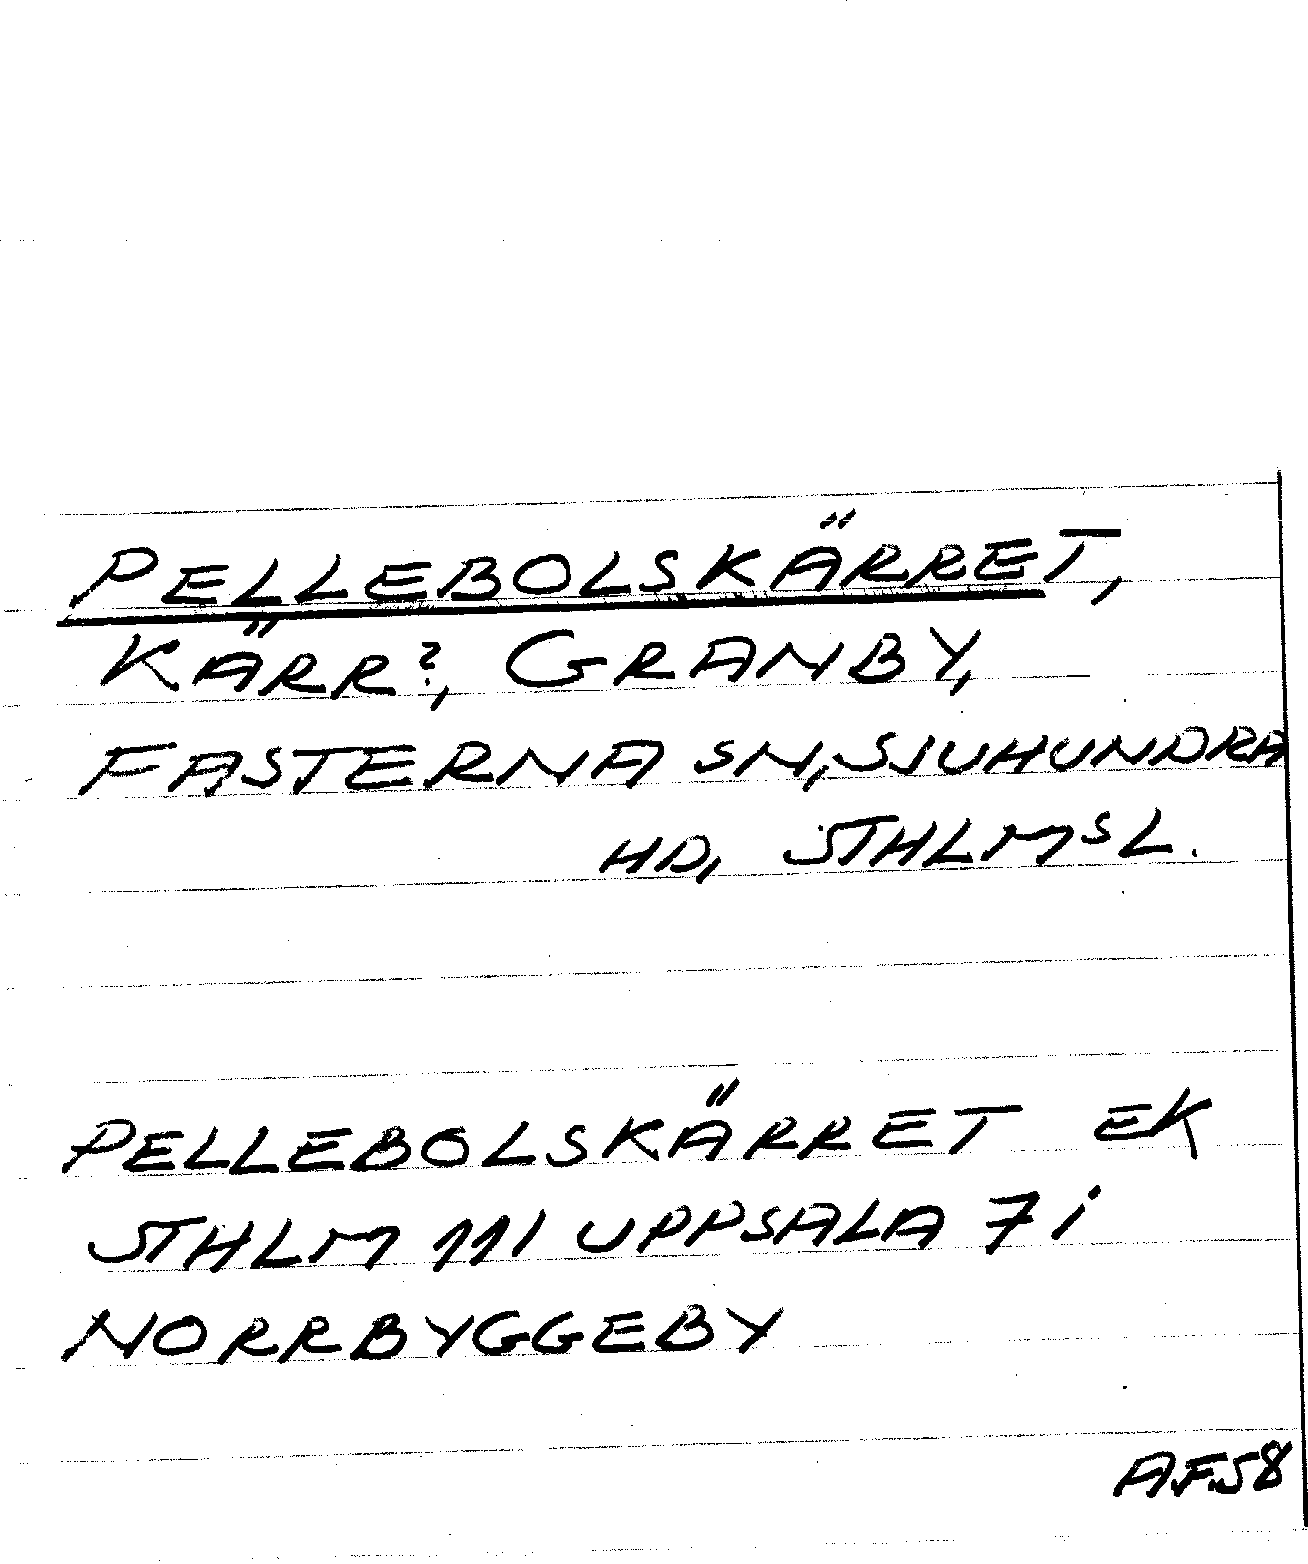 PELLEBOLSKÄRRET,
KÄRR?, GRANBY,
FASTERNA SN, SJUHUNDRA
HD, STHLMSL.
PELLEBOLSKÄRRET EK
STHLM 111 UPPSALA 7 i
NORRBYGGEBY
A.F.58